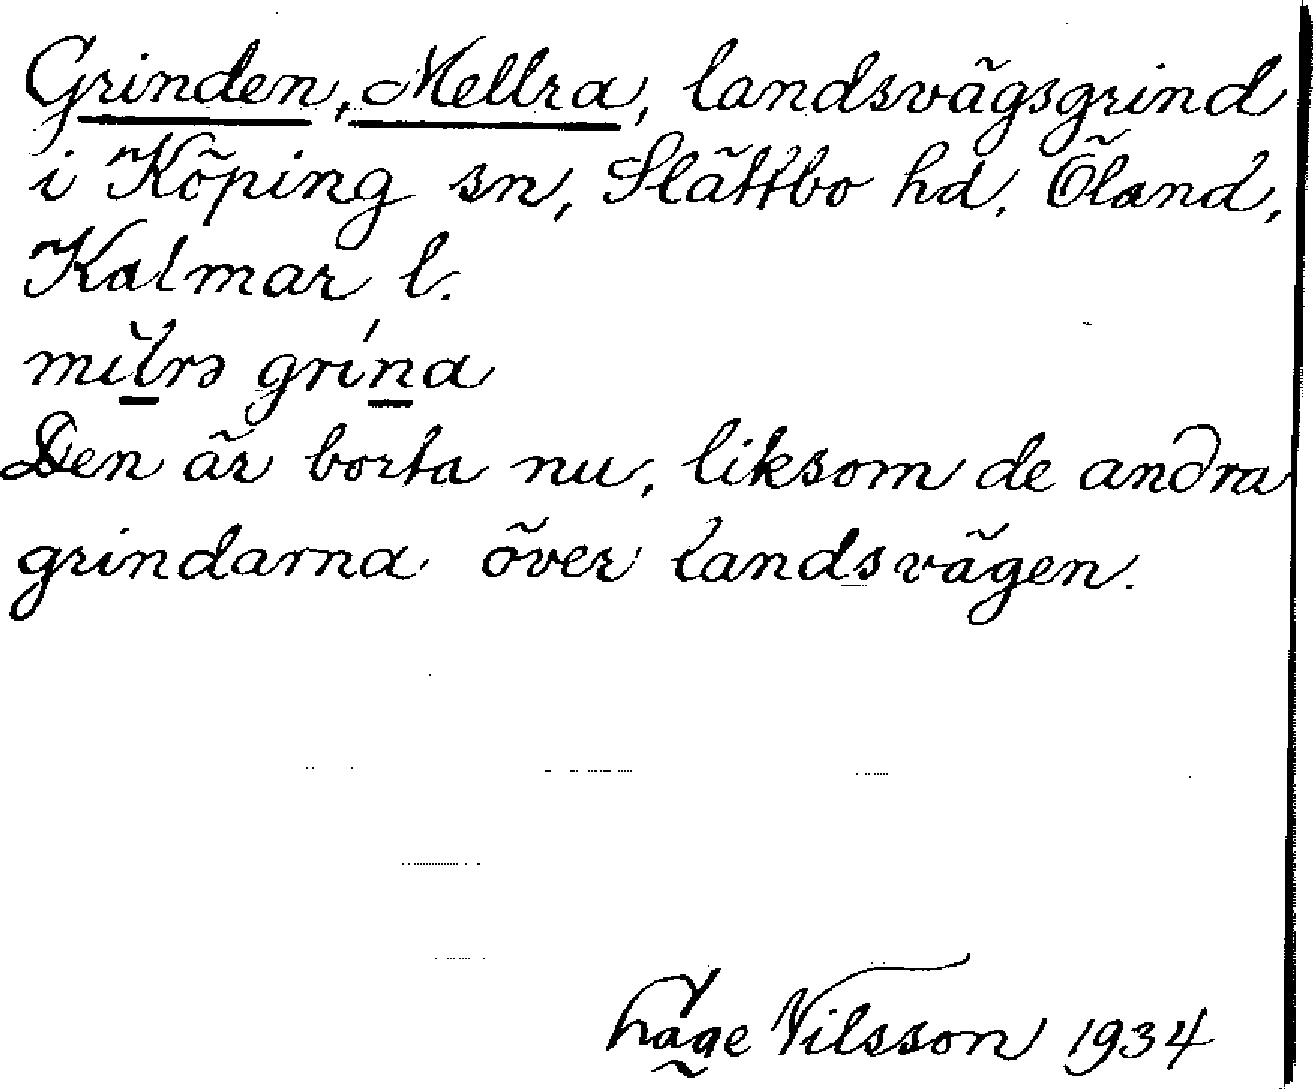 Grinden, Mellra, landsvägsgrind
i Köping sn, Slättbo hd. Öland,
Kalmar l.
milrə grína
Den är borta nu, liksom de andra
grindarna över landsvägen.
Nilsson 1934